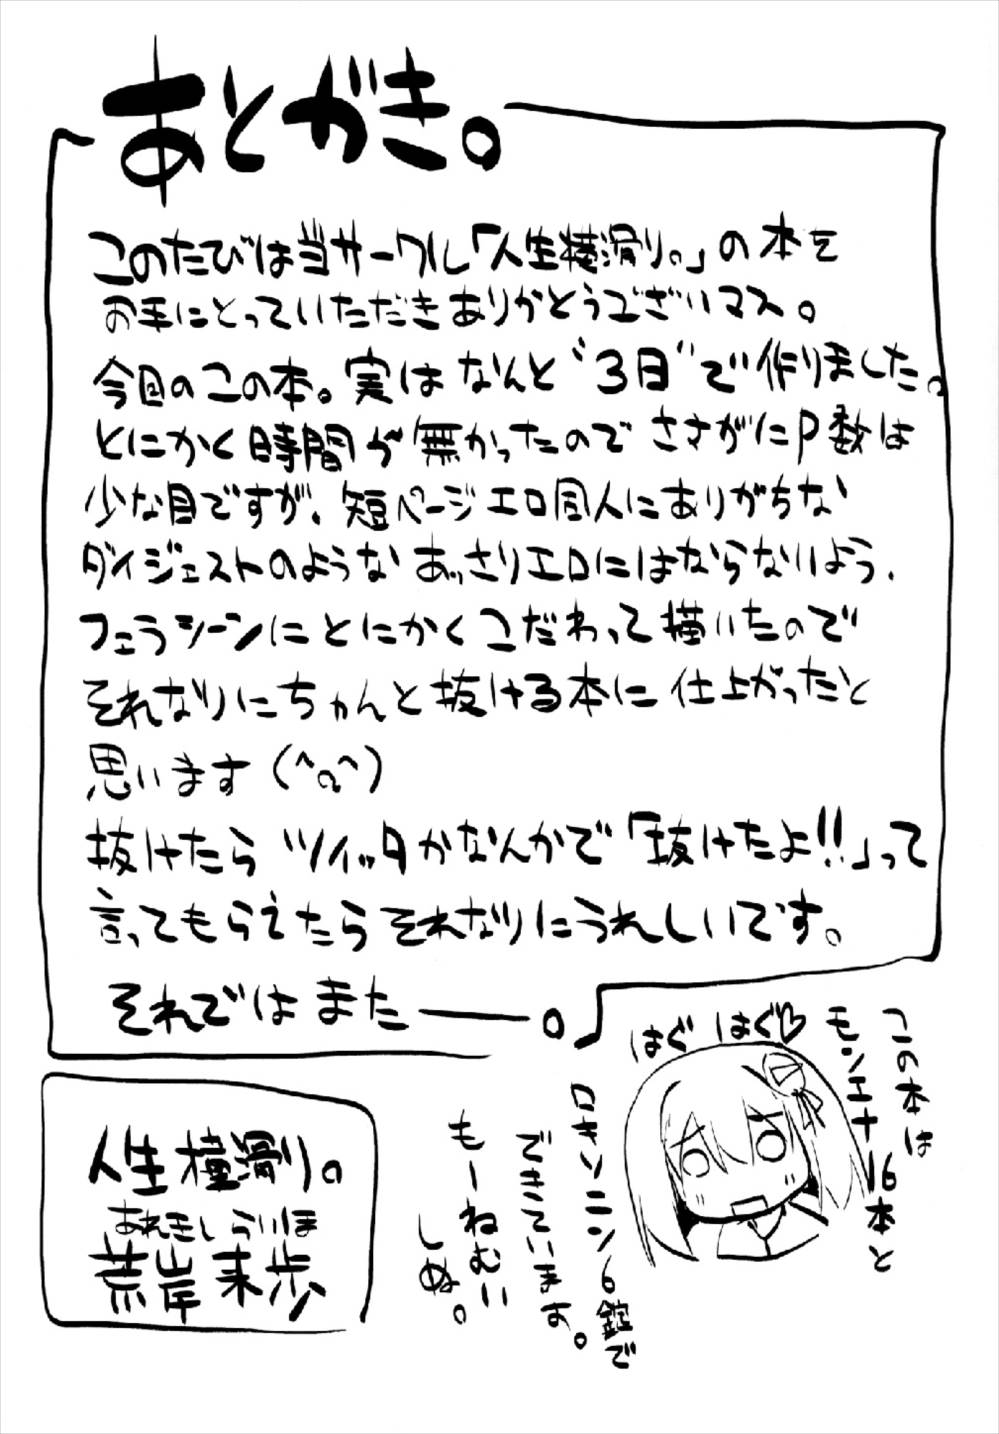 あとがき。
このたびは当サークル「人生横滑り。」の本を
お手にとっていただきありがとうございマス。
今回のこの本。実はなんと“3日”で作りました。
とにかく時間が無かったのでさすがにP数は
少な目ですが、短ページエロ同人にありがちな
ダイジェストのようなあっさりエロにはならないよう、
フェラシーンにとにかくこだわって描いたので
それなりにちゃんと抜ける本に仕上がったと
思います(^q^)
抜けたらツイッタかなんかで「抜けたよ!!」って
言ってもらえたらそれなりにうれしいです。
それではまたー。
はぐはぐ♡
この本は
モンエナ16本と
ロキソニン6錠で
できています。
もーねむい
しぬ。
人生横滑り。
あれきしらいほ
荒岸来歩